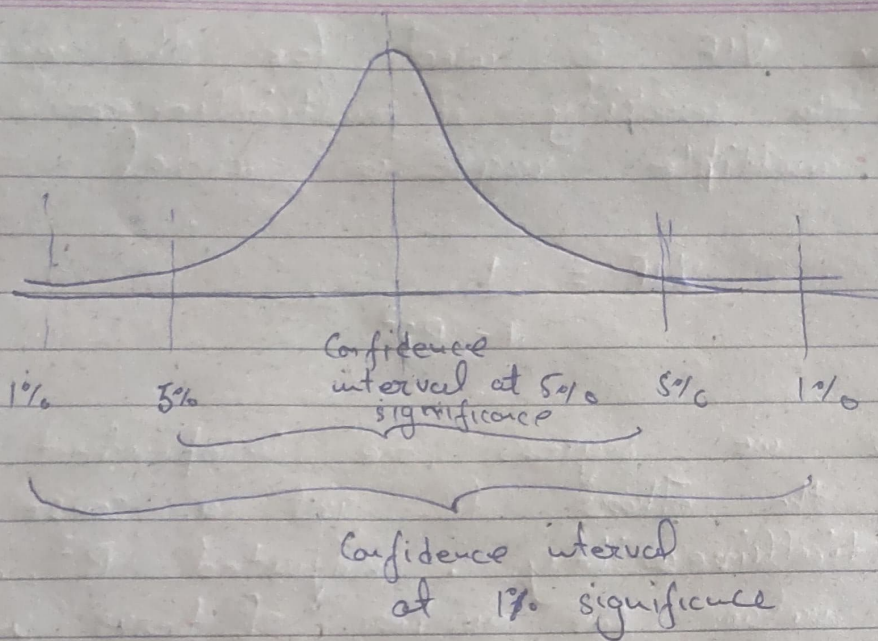 Confidence
interval at 5%
significance
1% 5% 5% 1%
Confidence interval
at 1% significance